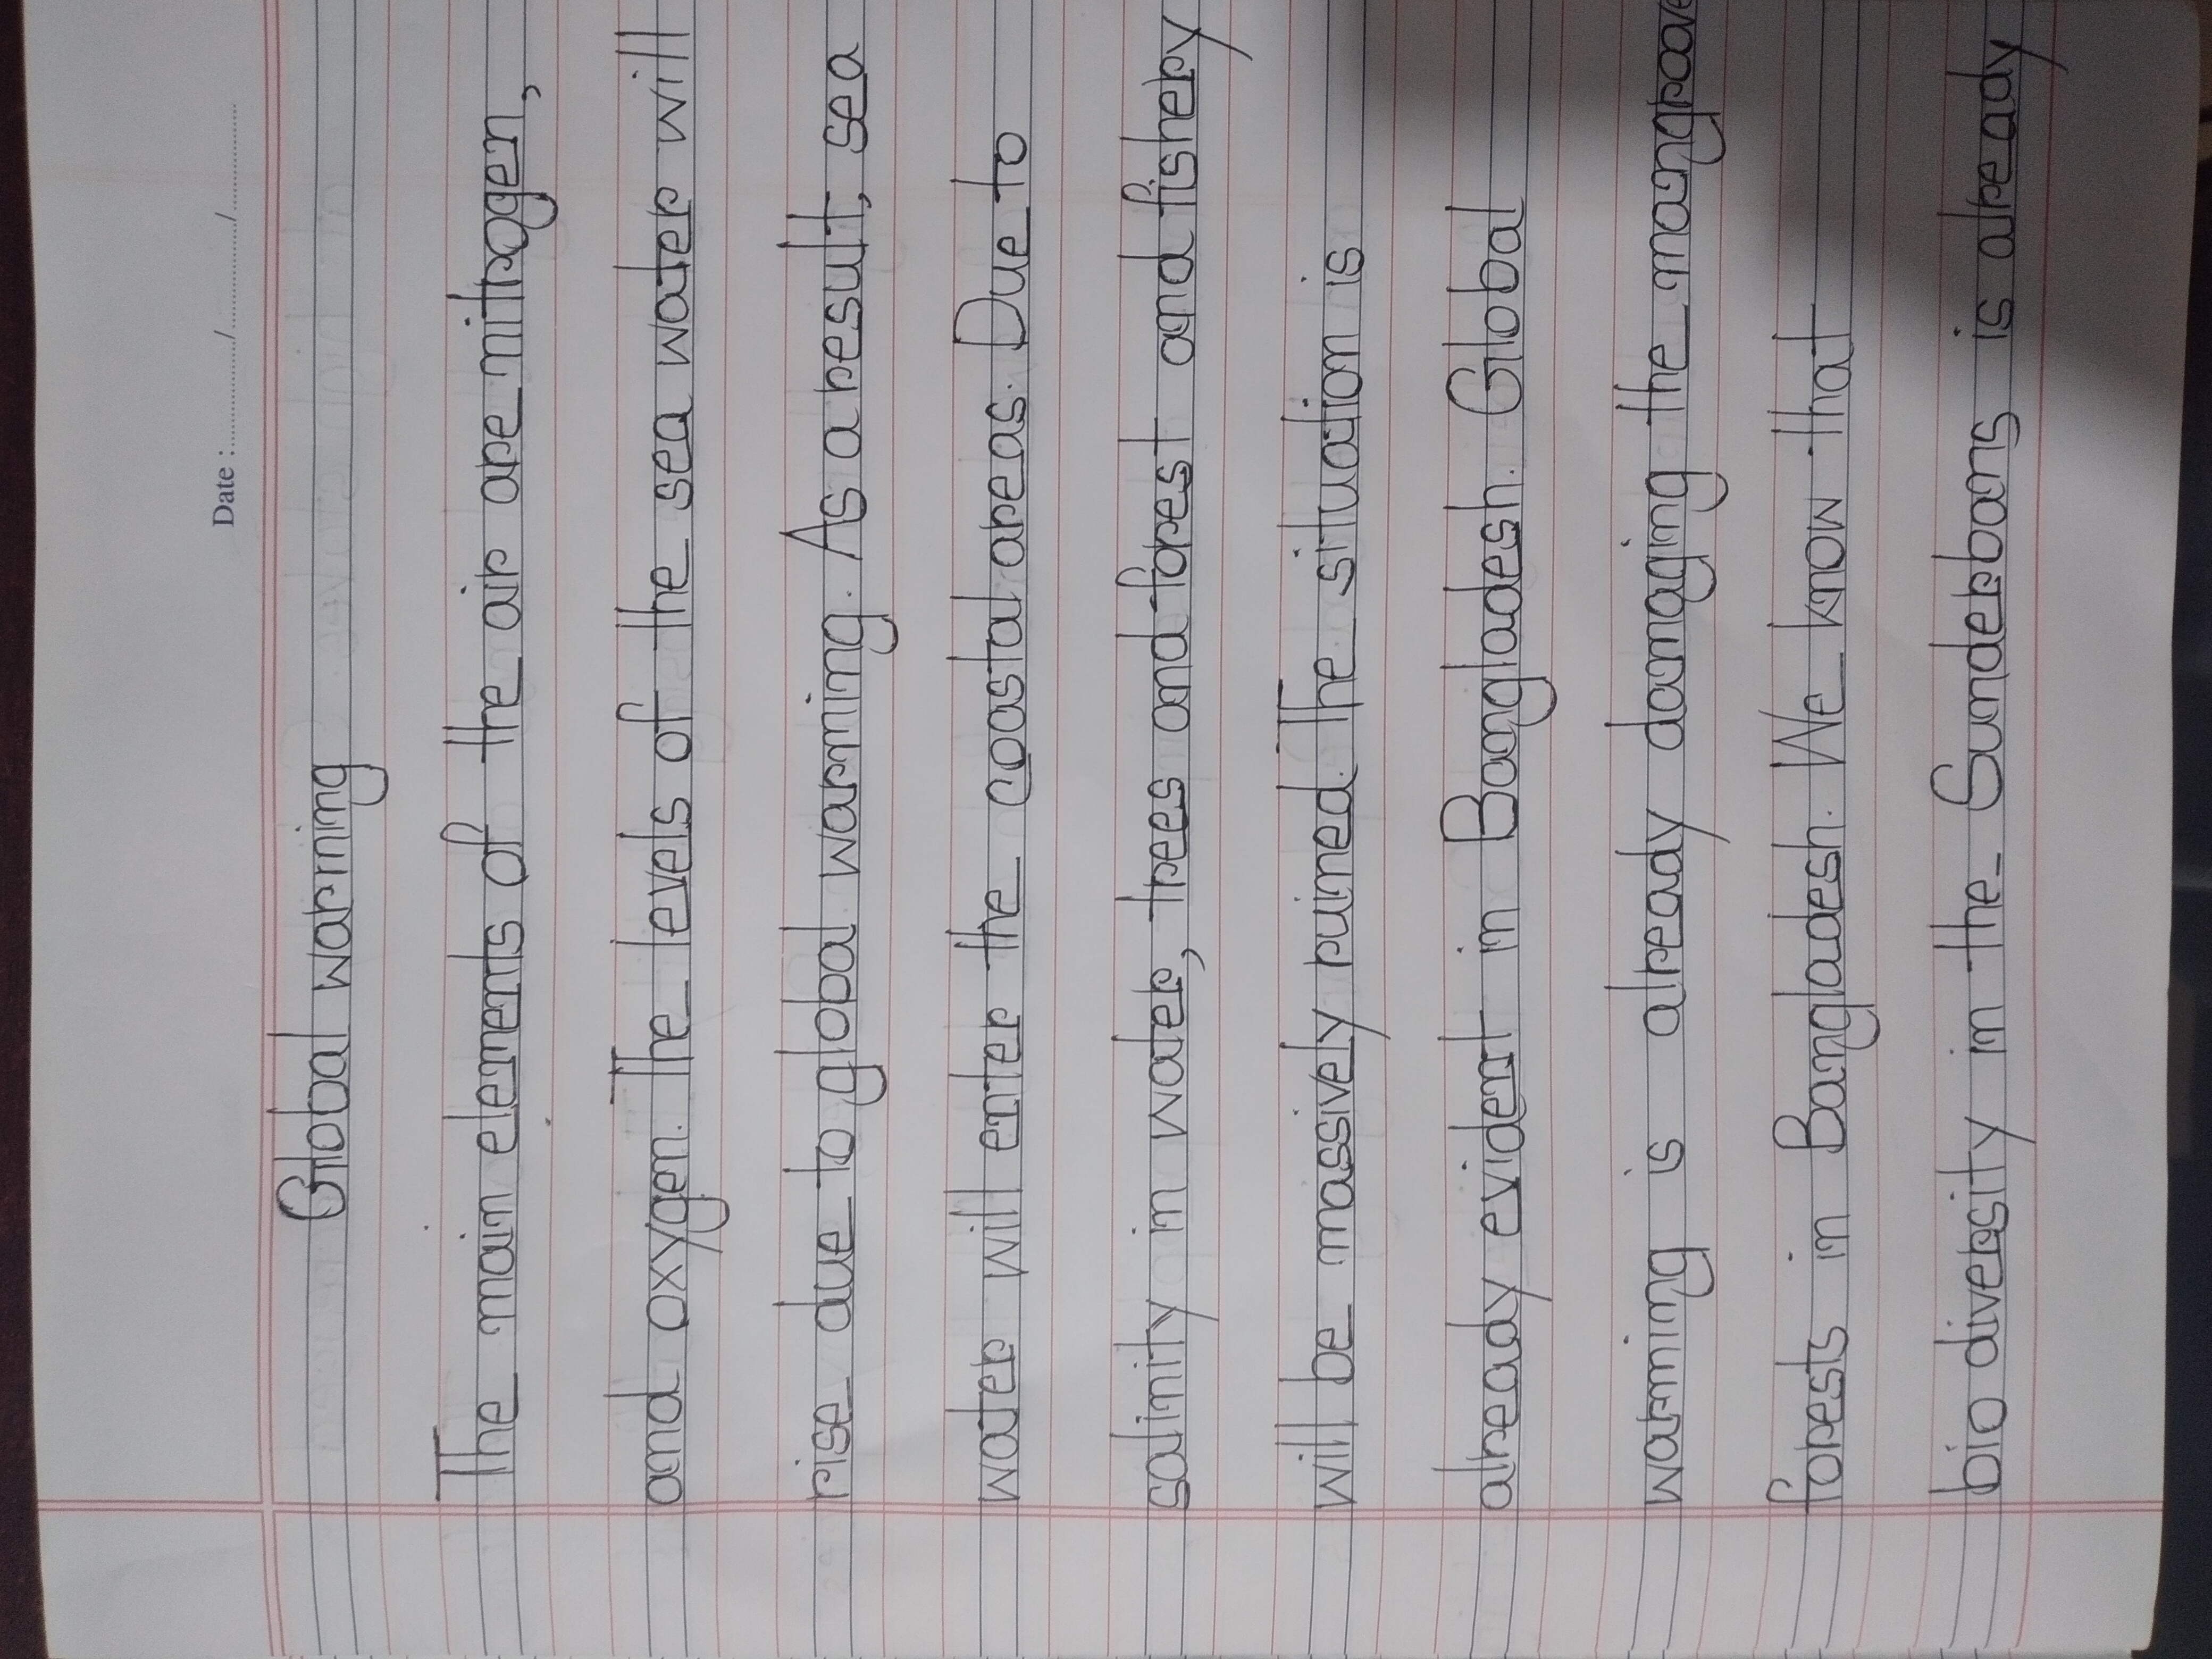 Date : ............/............/............
Global warming
The main elements of the air are nitrogen,
and oxygen. The levels of the sea water will
rise due to global warming. As a result, sea
water will enter the coastal areas. Due to
salinity in water, trees and forest and fishery
will be massively ruined. The situation is
already evident in Bangladesh. Global
warming is already damaging the mangrove
forests in Bangladesh. We know that
bio diversity in the Sunderbans is already